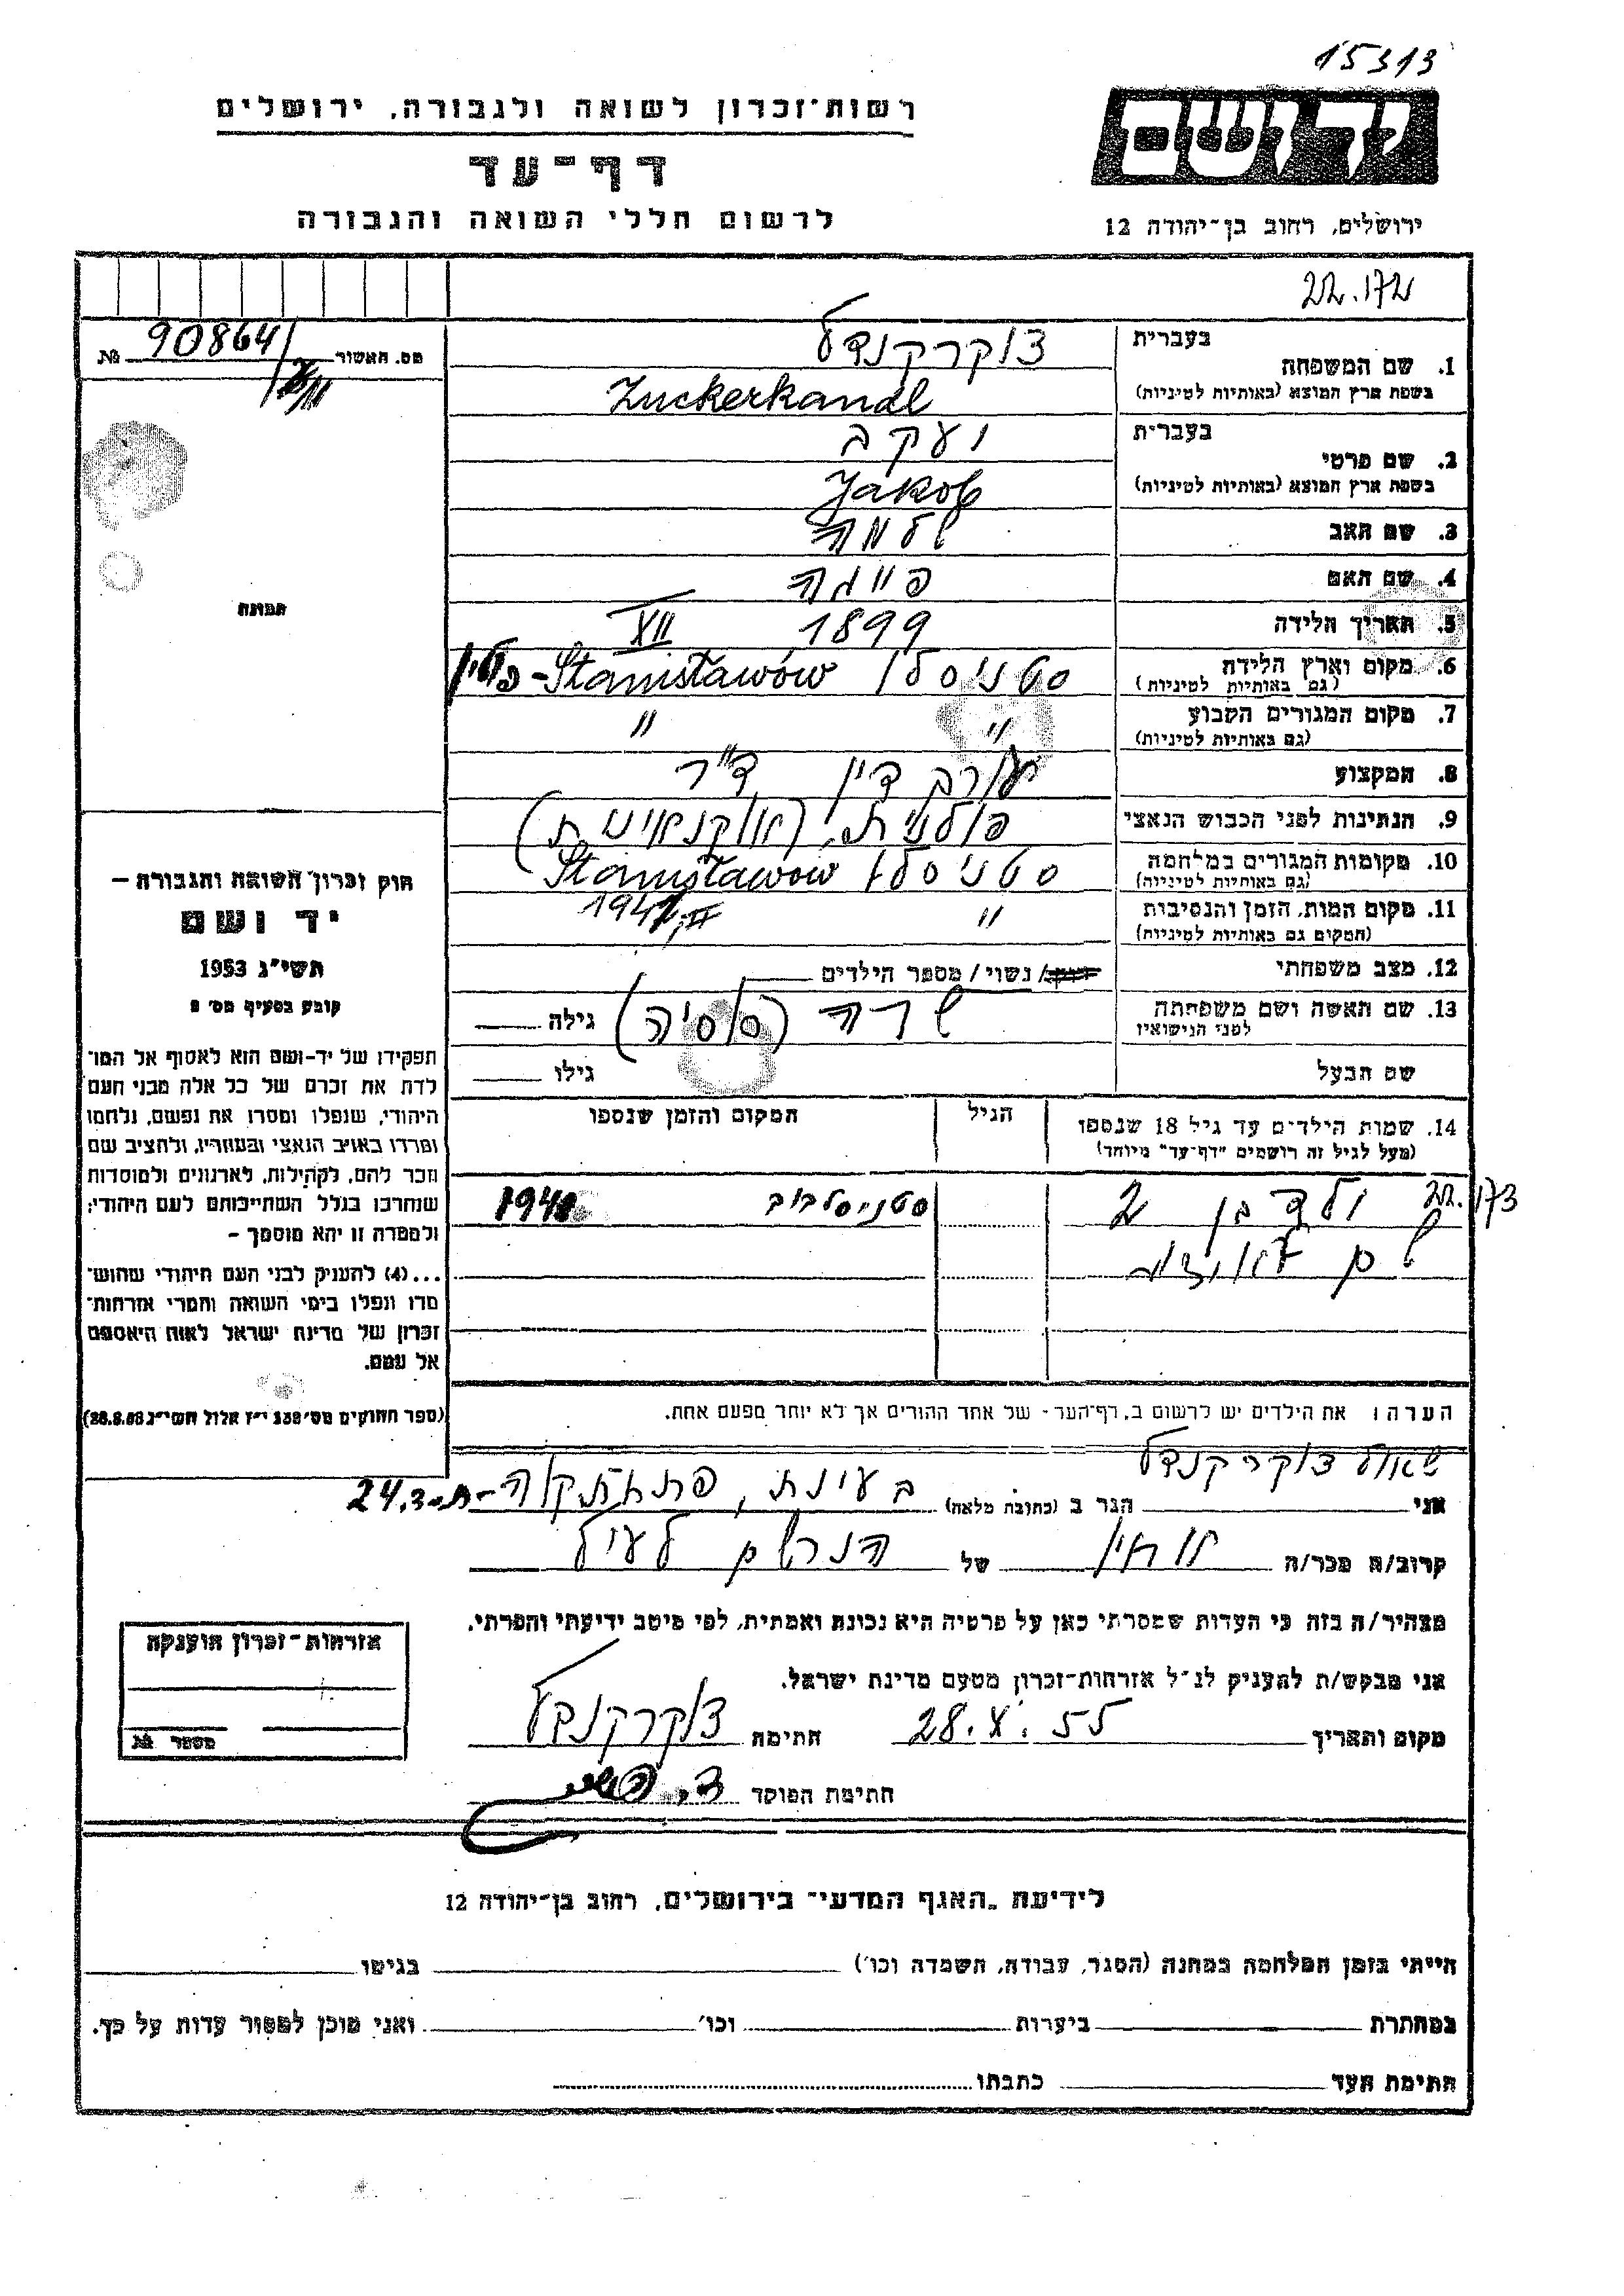 15313
רשות־זכרון לשואה ולגבורה, ירושלים
ידושם
דף־עד
לרשום חללי השואה והגבורה
ירושלים, רחוב בן־יהודה 12
22.172
מס. האשור № 90864
1. שם המשפחה
בעברית צוקרקנדל
בשפת ארץ המוצא (באותיות לטיניות) Zuckerkandl
2. שם פרטי
בעברית יעקב
בשפת ארץ המוצא (באותיות לטיניות) Jakob
3. שם האב שלמה
4. שם האם פייגה
תמונה
5. תאריך הלידה 1899 XII
6. מקום וארץ הלידה סטניסלו Stanisławów - פולין
(גם באותיות לטיניות)
7. מקום המגורים הקבוע " "
(גם באותיות לטיניות)
8. המקצוע עורך דין ד"ר
9. הנתינות לפני הכבוש הנאצי פולנית,
10. מקומות המגורים במלחמה סטניסלו Stanisławów
(גם באותיות לטיניות)
11. מקום המות, הזמן והנסיבות " 1941
(המקום גם באותיות לטיניות)
12. מצב משפחתי רווק/ נשוי / מספר הילדים
13. שם האשה ושם משפחתה שרה (סוסיה) גילה
לפני הנישואין
שם הבעל גילו
14. שמות הילדים עד גיל 18 שנספו הגיל המקום והזמן שנספו
(מעל לגיל זה רושמים "דף־עד" מיוחד)
22.173 ילד בן 2 סטניסלבוב 1941
שם
הערה: את הילדים יש לרשום ב„דף־העד״ של אחד ההורים אך לא יותר מפעם אחת.
חוק זכרון השואה והגבורה —
יד ושם
תשי״ג 1953
קובע בסעיף מס׳ 2
תפקידו של יד-ושם הוא לאסוף אל המו־
לדת את זכרם של כל אלה מבני העם
היהודי, שנפלו ומסרו את נפשם, נלחמו
ומרדו באויב הנאצי ובעוזריו, ולהציב שם
וזכר להם, לקהילות, לארגונים ולמוסדות
שנחרבו בגלל השתייכותם לעם היהודי;
ולמטרה זו יהא מוסמך —
...(4) להעניק לבני העם היהודי שהוש־
מדו ונפלו בימי השואה והמרי אזרחות־
זכרון של מדינת ישראל לאות היאספם
אל עמם.
(ספר החוקים מס׳ 132 י״ז אלול תשי״ג 28.8.53)
אני שאול צוקרקנדל הגר ב (כתובת מלאה) פתח תקוה ת.ד. 24
קרוב/ה מכר/ה של הנרשם לעיל
מצהיר/ה בזה כי העדות שמסרתי כאן על פרטיה היא נכונה ואמתית, לפי מיטב ידיעתי והכרתי.
אני מבקש/ת להעניק לנ״ל אזרחות־זכרון מטעם מדינת ישראל.
מקום ותאריך 28.X.55 חתימה צוקרקנדל
חתימת הפוקד
אזרחות־זכרון הוענקה
מספר №
לידיעת „האגף המדעי״ בירושלים, רחוב בן־יהודה 12
הייתי בזמן המלחמה במחנה (הסגר, עבודה, השמדה וכו׳) בגיטו
במחתרת ביערות וכו׳ ואני מוכן למסור עדות על כך.
חתימת העד כתבתו